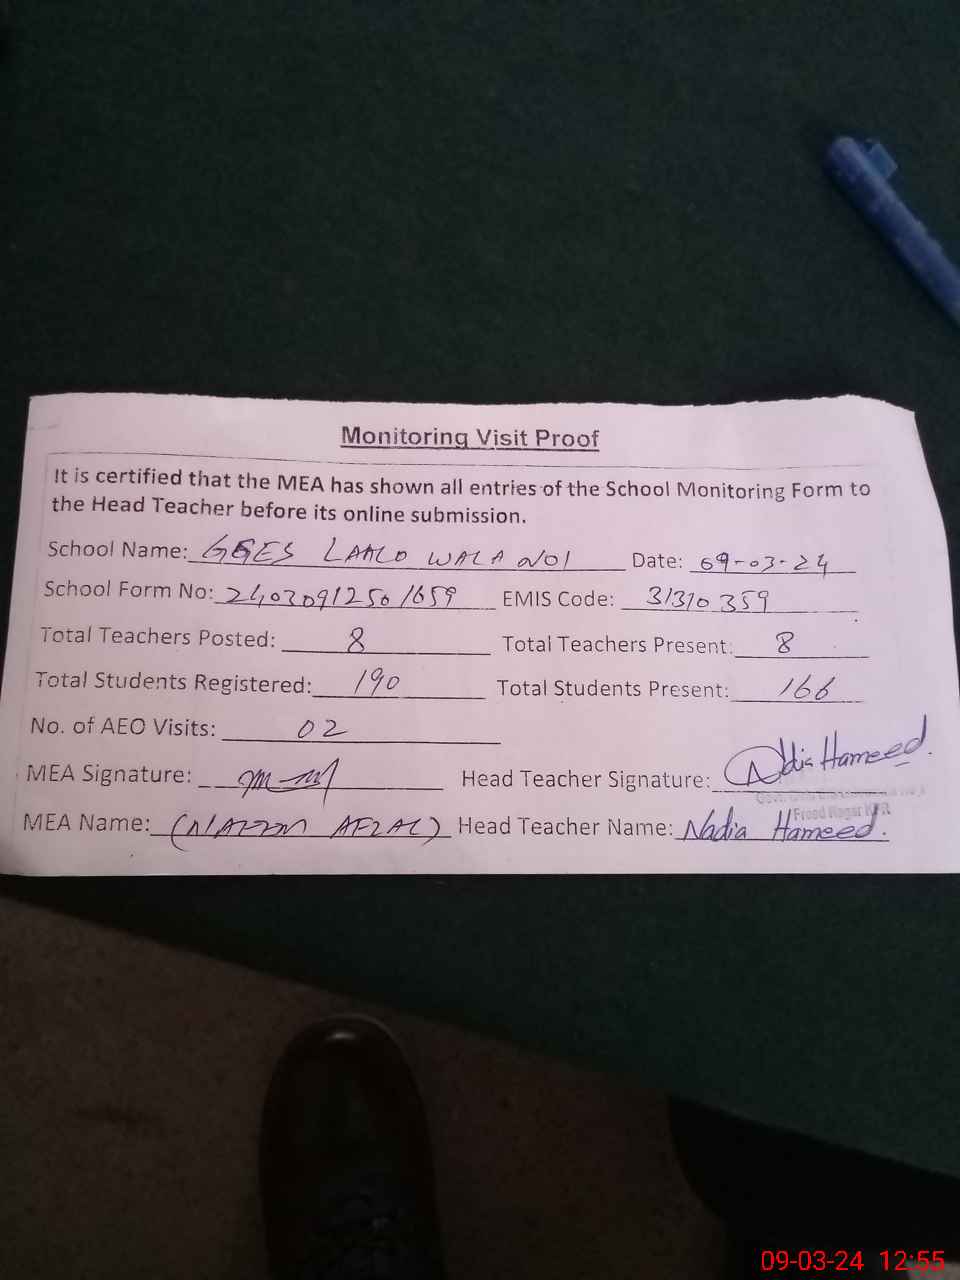 Monitoring Visit Proof
It is certified that the MEA has shown all entries of the School Monitoring Form to
the Head Teacher before its online submission.
School Name: GGES LAALO WALA NO1 Date: 09-03-24
School Form No: 24030912501659 EMIS Code: 31310359
Total Teachers Posted: 8 Total Teachers Present: 8
Total Students Registered: 190 Total Students Present: 166
No. of AEO Visits: 02
MEA Signature: Head Teacher Signature: Nadia Hameed.
MEA Name: (NAZIM AFZAL) Head Teacher Name: Nadia Hameed.
09-03-24 12:55